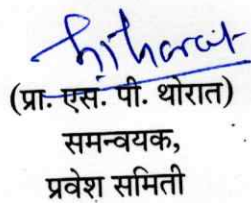 (प्रा. एस. पी. थोरात)
समन्वयक,
प्रवेश समिती